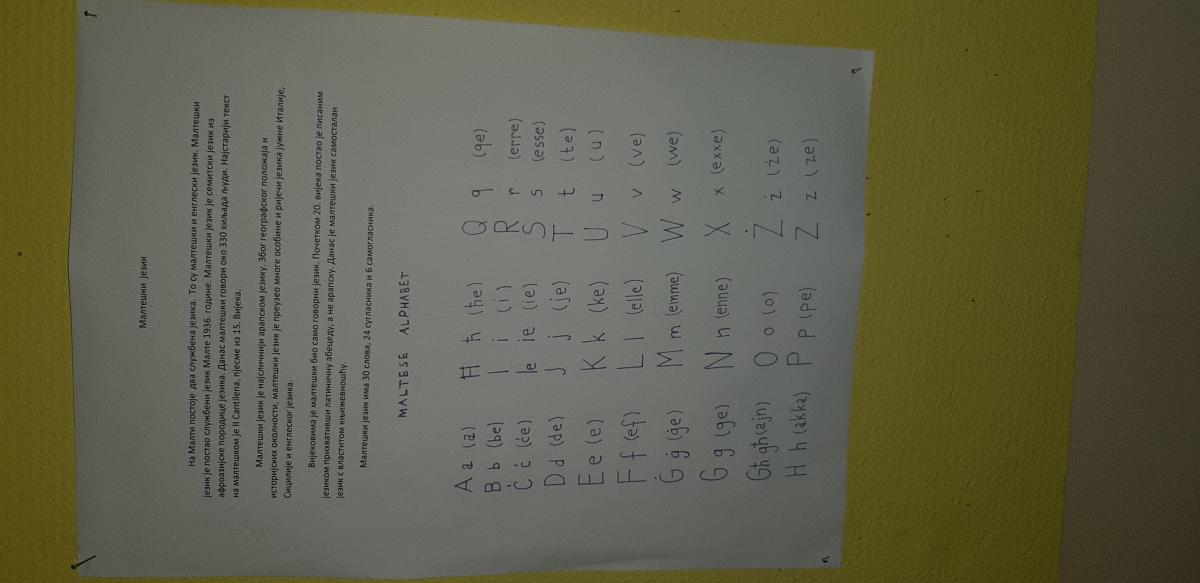 Малтешки језик
На Малти постоје два службена језика. То су малтешки и енглески језик. Малтешки
језик је постао службени језик Малте 1936. године. Малтешки језик је семитски језик из
афроазијске породице језика. Данас малтешки говори око 330 хиљада људи. Најстарији текст
на малтешком је Il Cantilena, пјесме из 15. Вијека.
Малтешки језик је најсличнији арапском језику. Због географског положаја и
историјских околности, малтешки језик је преузео многе особине и ријечи језика јужне Италије,
Сицилије и енглеског језика.
Вијековима је малтешки био само говорни језик. Почетком 20. вијека постао је писаним
језиком прихвативши латиничну абецеду, а не арапску. Данас је малтешки језик самосталан
језик с властитом књижевношћу.
Малтешки језик има 30 слова, 24 сугласника и 6 самогласника.
MALTESE ALPHABET
A a (a) Ħ ħ (ħe) Q q (qe)
B b (be) I i (i) R r (erre)
Ċ ċ (ċe) Ie ie (ie) S s (esse)
D d (de) J j (je) T t (te)
E e (e) K k (ke) U u (u)
F f (ef) L l (elle) V v (ve)
Ġ ġ (ġe) M m (emme) W w (we)
G g (ge) N n (enne) X x (exxe)
Għ għ (ajn) O o (o) Ż ż (że)
H h (akka) P p (pe) Z z (ze)